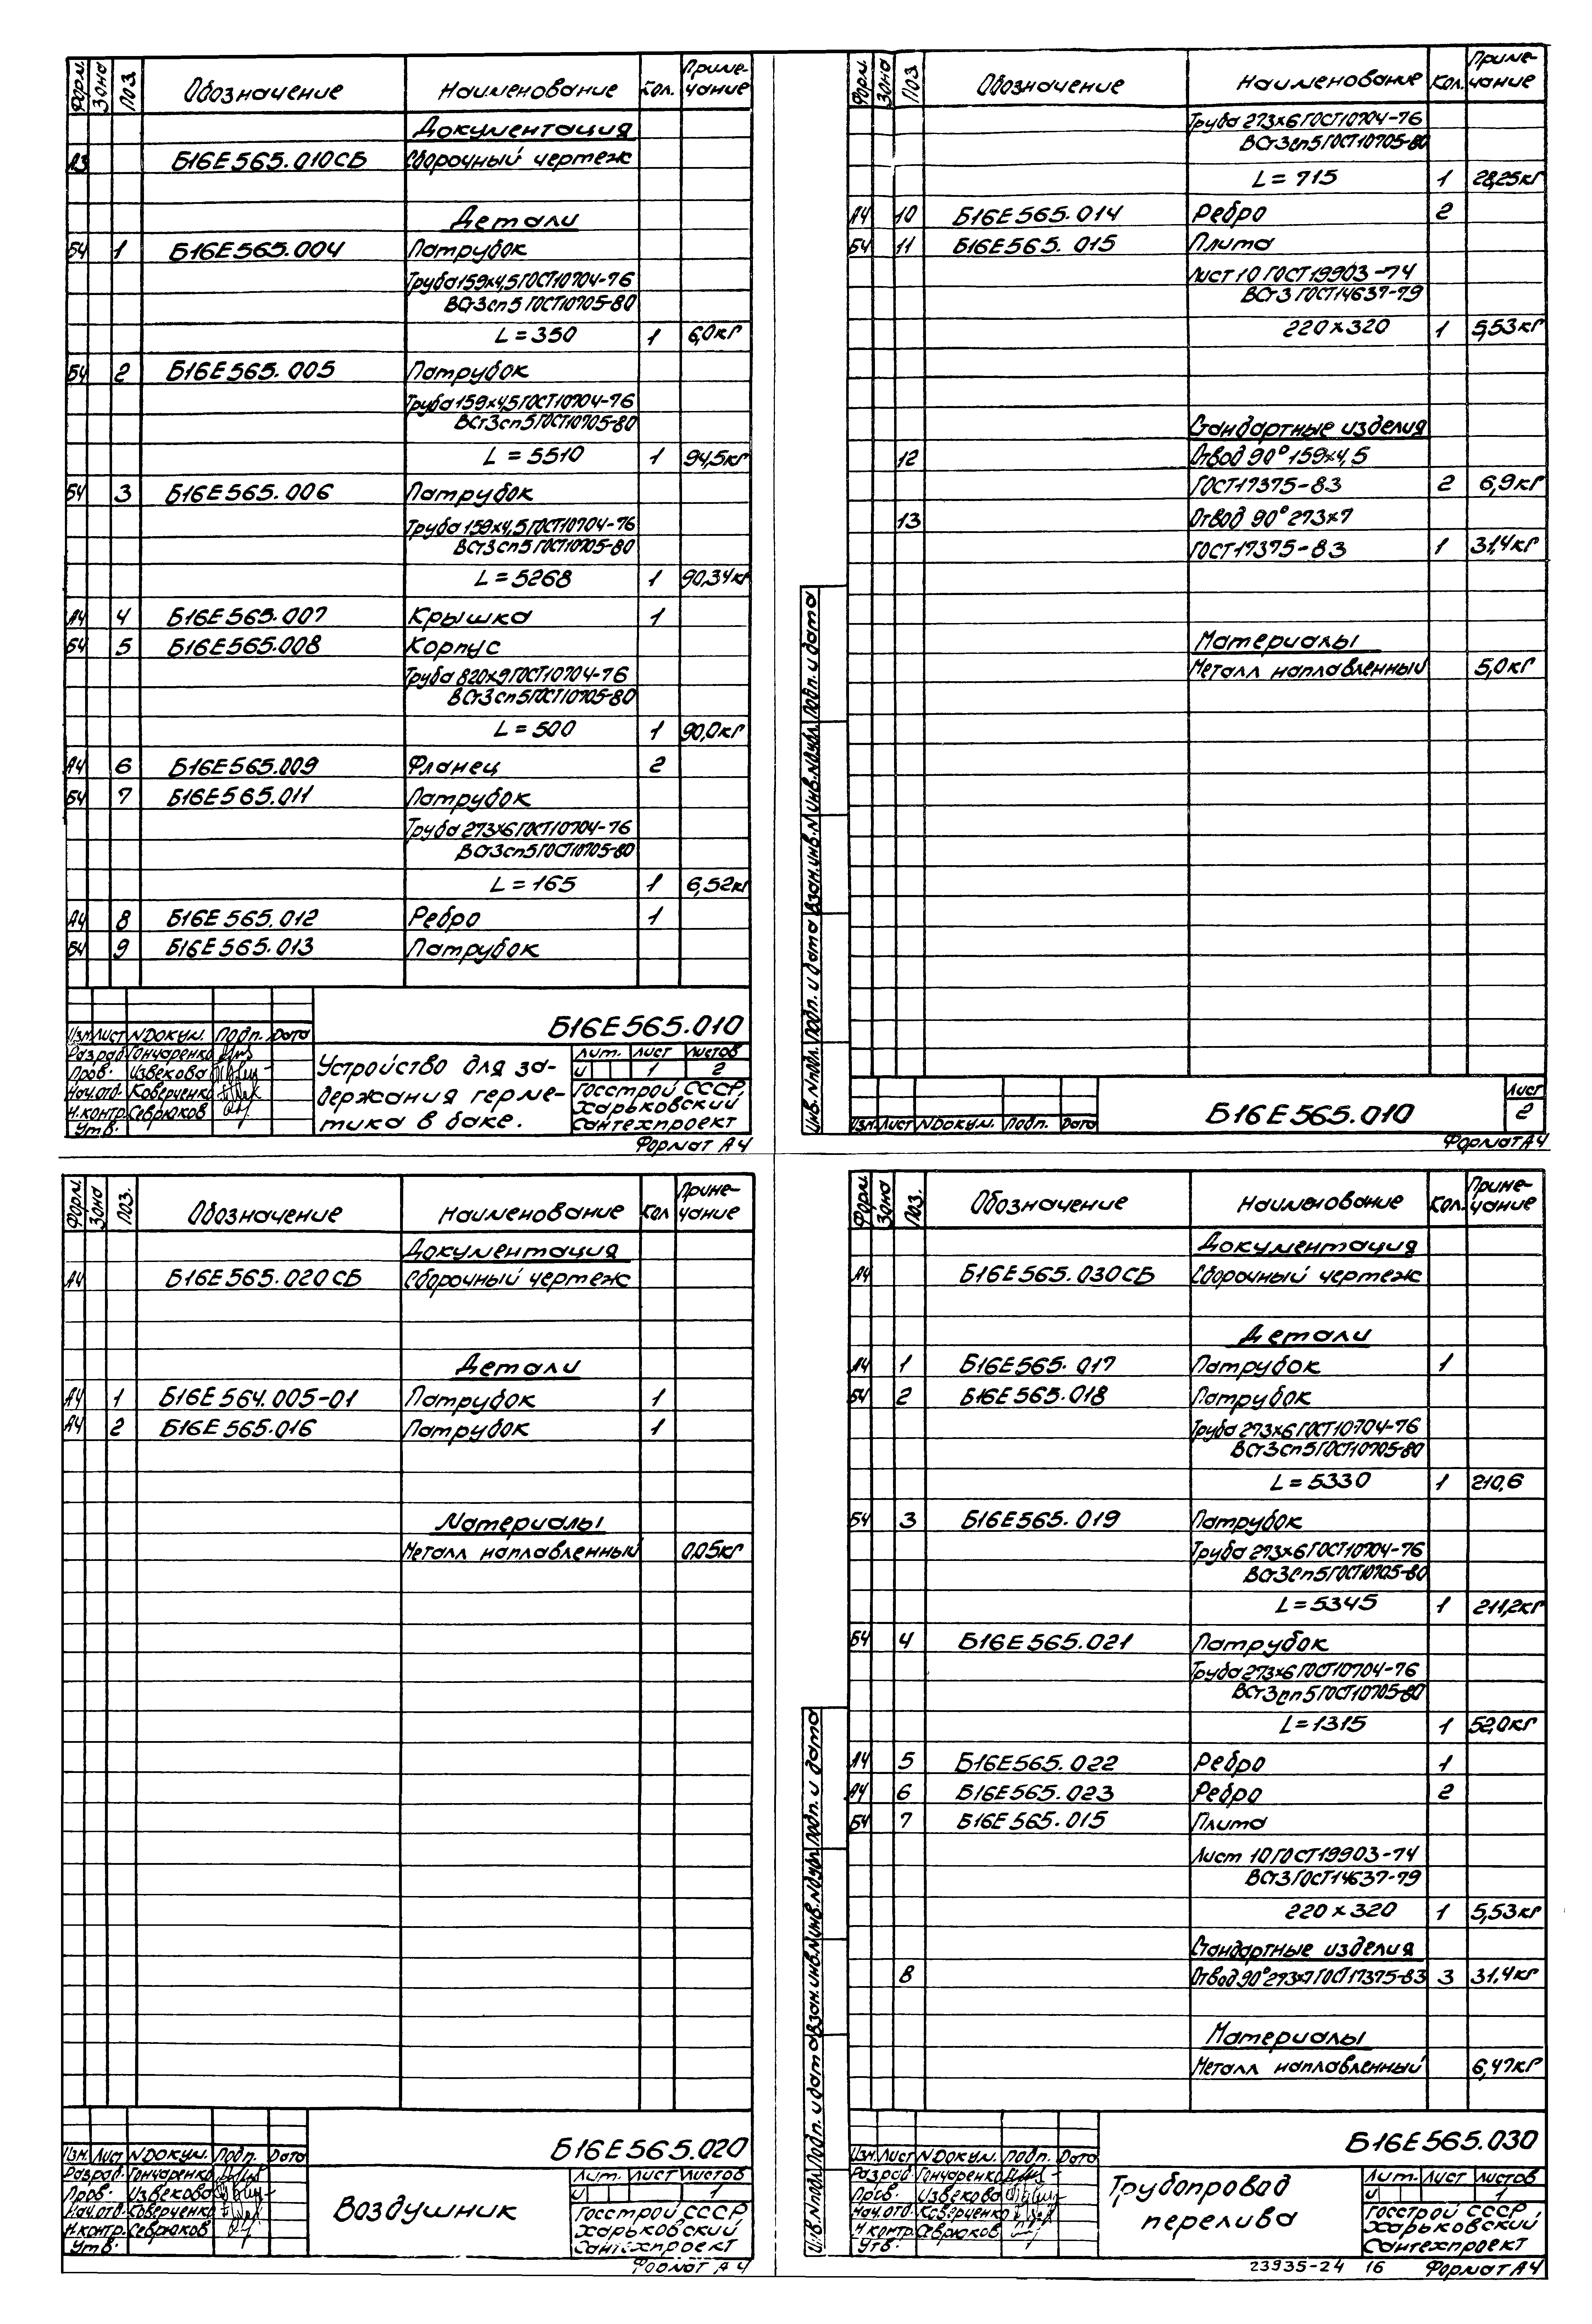 Форм. Зона Поз. Обозначение Наименование Кол. Приме-
чание
Документация
А3 Б16Е565.010СБ Сборочный чертеж
Детали
Б4 1 Б16Е565.004 Патрубок
Труба 159х4,5 ГОСТ10704-76
ВСт3сп5 ГОСТ10705-80
L = 350 1 6,0кг
Б4 2 Б16Е565.005 Патрубок
Труба 159х4,5 ГОСТ10704-76
ВСт3сп5 ГОСТ10705-80
L = 5510 1 94,5кг
Б4 3 Б16Е565.006 Патрубок
Труба 159х4,5 ГОСТ10704-76
ВСт3сп5 ГОСТ10705-80
L = 5268 1 90,34кг
А4 4 Б16Е565.007 Крышка 1
Б4 5 Б16Е565.008 Корпус
Труба 820х9 ГОСТ10704-76
ВСт3сп5 ГОСТ10705-80
L = 500 1 90,0кг
А4 6 Б16Е565.009 Фланец 2
Б4 7 Б16Е565.011 Патрубок
Труба 273х6 ГОСТ10704-76
ВСт3сп5 ГОСТ10705-80
L = 165 1 6,52кг
А4 8 Б16Е565.012 Ребро 1
Б4 9 Б16Е565.013 Патрубок
Б16Е565.010
Изм. Лист N докум. Подп. Дата
Разраб. Гончаренко
Пров. Извекова
Нач.отд. Коверченко
Н.контр. Севрюков
Утв.
Устройство для за-
держания герме-
тика в баке.
Лит. Лист Листов
И 1 2
Госстрой СССР,
Харьковский
Сантехпроект
Формат А4
Форм. Зона Поз. Обозначение Наименование Кол. Приме-
чание
Труба 273х6 ГОСТ10704-76
ВСт3сп5 ГОСТ10705-80
L = 715 1 28,25кг
А4 10 Б16Е565.014 Ребро 2
Б4 11 Б16Е565.015 Плита
Лист 10 ГОСТ19903-74
ВСт3 ГОСТ14637-79
220х320 1 5,53кг
Стандартные изделия
12 Отвод 90° 159х4,5
ГОСТ17375-83 2 6,9кг
13 Отвод 90° 273х7
ГОСТ17375-83 1 31,4кг
Материалы
Металл наплавленный 5,0кг
Инв.N подл. Подп. и дата Взам.инв.N Инв.N дубл. Подп. и дата
Изм. Лист N докум. Подп. Дата
Б16Е565.010
Лист
2
Формат А4
Форм. Зона Поз. Обозначение Наименование Кол Приме-
чание
Документация
А4 Б16Е565.020СБ Сборочный чертеж
Детали
А4 1 Б16Е564.005-01 Патрубок 1
А4 2 Б16Е565.016 Патрубок 1
Материалы
Металл наплавленный 0,05кг
Б16Е565.020
Изм. Лист N докум. Подп. Дата
Разраб. Гончаренко
Пров. Извекова
Нач.отд. Коверченко
Н.контр. Севрюков
Утв.
Воздушник
Лит. Лист Листов
И 1
Госстрой СССР
Харьковский
Сантехпроект
Формат А4
Форм. Зона Поз. Обозначение Наименование Кол. Приме-
чание
Документация
А4 Б16Е565.030СБ Сборочный чертеж
Детали
А4 1 Б16Е565.017 Патрубок 1
Б4 2 Б16Е565.018 Патрубок
Труба 273х6 ГОСТ10704-76
ВСт3сп5 ГОСТ10705-80
L = 5330 1 210,6
Б4 3 Б16Е565.019 Патрубок
Труба 273х6 ГОСТ10704-76
ВСт3сп5 ГОСТ10705-80
L = 5345 1 211,2кг
Б4 4 Б16Е565.021 Патрубок
Труба 273х6 ГОСТ10704-76
ВСт3сп5 ГОСТ10705-80
L = 1315 1 52,0кг
А4 5 Б16Е565.022 Ребро 1
А4 6 Б16Е565.023 Ребро 2
Б4 7 Б16Е565.015 Плита
Лист 10 ГОСТ19903-74
ВСт3 ГОСТ14637-79
220х320 1 5,53кг
Стандартные изделия
8 Отвод 90° 273х7 ГОСТ17375-83 3 31,4кг
Материалы
Металл наплавленный 6,47кг
Инв.N подл. Подп. и дата Взам.инв.N Инв.N дубл. Подп. и дата
Б16Е565.030
Изм. Лист N докум. Подп. Дата
Разраб. Гончаренко
Пров. Извекова
Нач.отд. Коверченко
Н.контр. Севрюков
Утв.
Трубопровод
перелива
Лит. Лист Листов
И 1
Госстрой СССР
Харьковский
Сантехпроект
23935-24 16 Формат А4